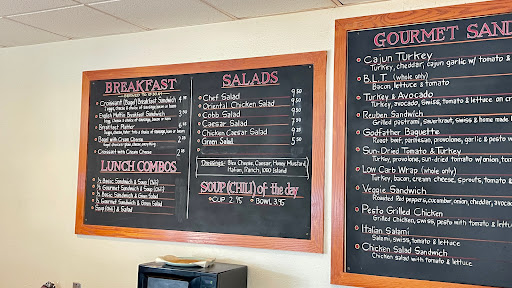 BREAKFAST
Croissant (Bagel) Breakfast Sandwich
English Muffin Breakfast Sandwich
Breakfast Platter
Bagel with Cream Cheese
Croissant with Cream Cheese
LUNCH COMBOS
½ Basic Sandwich & Soup
½ Gourmet Sandwich & Soup
½ Basic Sandwich & Green Salad
½ Gourmet Sandwich & Green Salad
Soup (chili) & Salad
SALADS
Chef Salad 9.50
Oriental Chicken Salad
Cobb Salad
Caesar Salad
Chicken Caesar Salad
Green Salad
Dressings: Bleu Cheese, Caesar, Honey Mustard,
Italian, Ranch, 1000 Island
SOUP (CHILI) of the day
CUP 2.95 BOWL 3.95
GOURMET SAND
Cajun Turkey
Turkey, cheddar, cajun garlic w/ tomato &
B.L.T. (whole only)
Bacon, lettuce & tomato
Turkey & Avocado
Turkey, avocado, swiss, tomato & lettuce on
Reuben Sandwich
Grilled pastrami, sauerkraut, swiss & home made
Godfather Baguette
Roast beef, parmesan, provolone, garlic & pesto
Sun-Dried Tomato & Turkey
Turkey, provolone, sun-dried tomato w/onion,
Low Carb Wrap (whole only)
Turkey, bacon, cream cheese, sprouts, tomato &
Veggie Sandwich
Roasted Red peppers, cucumber, onion, cheddar, avocado
Pesto Grilled Chicken
Grilled Chicken, swiss, pesto with tomato & lettuce
Italian Salami
Salami, swiss, tomato & lettuce
Chicken Salad Sandwich
Chicken salad with tomato & lettuce